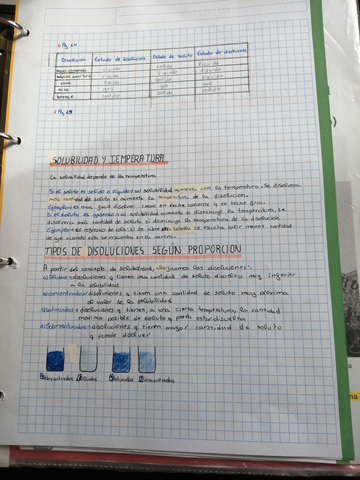 Pg 64
Disolución Estado de disolución Estado de soluto Estado de disolvente
SOLUBILIDAD Y TEMPERATURA
La solubilidad depende de la temperatura
Si el soluto es solido o liquido su solubilidad aumenta con la temperatura. Se disolverá
mas cantidad de soluto si aumenta la temperatura de la disolución.
Ejemplo: es mas facil disolver cacao en leche caliente q en leche fria.
Si el soluto es gaseoso su solubilidad aumenta si disminuye la temperatura, se
disolverá mas cantidad de soluto si disminuye la temperatura de la disolución
Ejemplo: el refresco de cola: si se abre una botella se escucha salir menos cantidad
de gas cuando esta se encuentra en la nevera.
TIPOS DE DISOLUCIONES SEGÚN PROPORCION
A partir del concepto de solubilidad, clasificamos las disoluciones:
a) diluidas: disoluciones q tienen una cantidad de soluto disuelto muy inferior
a la solubilidad
b) concentradas: disoluciones q tienen una cantidad de soluto muy próxima
al valor de la solubilidad
c) saturadas: disoluciones q tienen, a una cierta temperatura, la cantidad
máxima posible de soluto q puede estar disuelta
d) Sobresaturadas: disoluciones q tienen mayor cantidad de soluto
q puede disolver
Sobresaturadas Diluidas Saturadas Concentradas